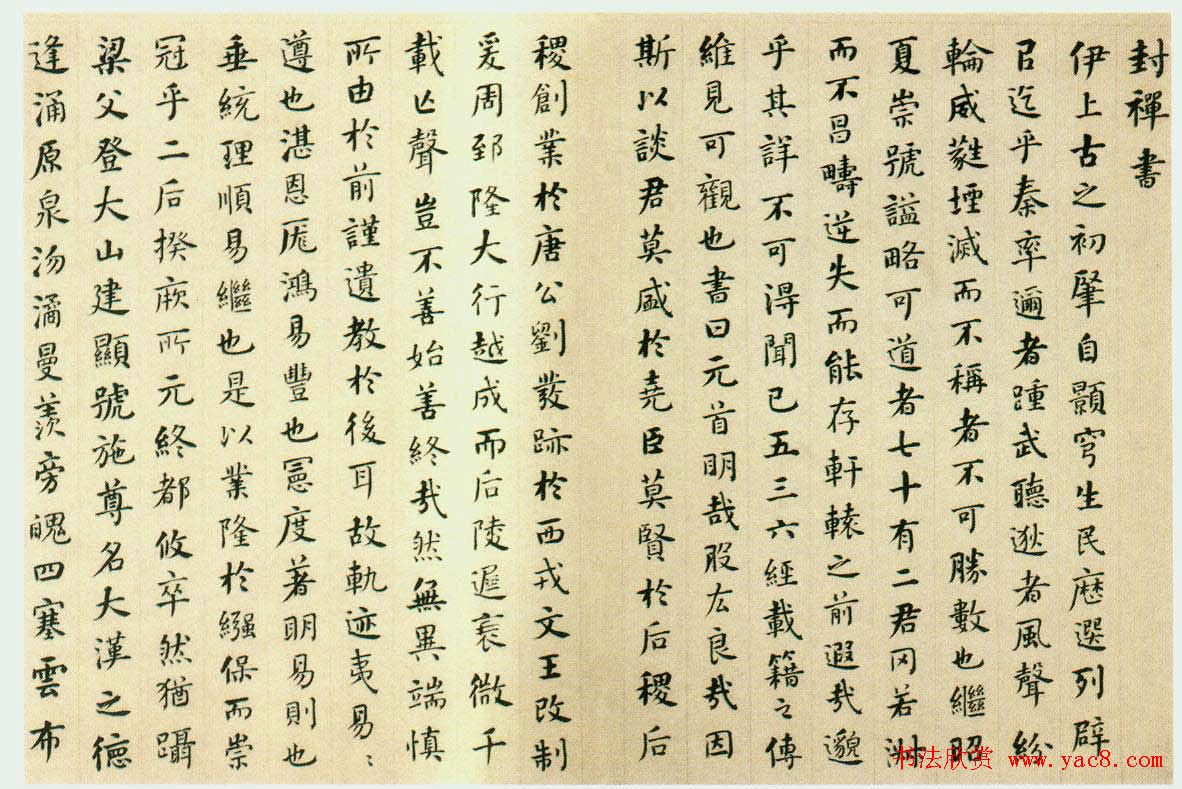 封禪書
伊上古之初肇自顥穹生民歷選列辟
㠯迄乎秦率邇者踵武聽逖者風聲紛
輪威蕤堙滅而不稱者不可勝數也繼昭
夏崇號謚略可道者七十有二君罔若淑
而不昌疇逆失而能存軒轅之前遐哉邈
乎其詳不可得聞已五三六經載籍之傳
維見可觀也書曰元首明哉股厷良哉因
斯以談君莫盛於堯臣莫賢於后稷后
稷創業於唐公劉發跡於西戎文王改制
爰周郅隆大行越成而后陵遲衰微千
載亡聲豈不善始善終哉然無異端慎
所由於前謹遺教於後耳故軌迹夷易﹅
遵也湛恩厖鴻易豐也憲度著明易則也
垂統理順易繼也是以業隆於繈保而崇
冠乎二后揆厥所元終都攸卒然猶躡
梁父登大山建顯號施尊名大漢之德
逢涌原泉沕潏曼羨旁魄四塞雲布
书法欣赏 www.yac8.com